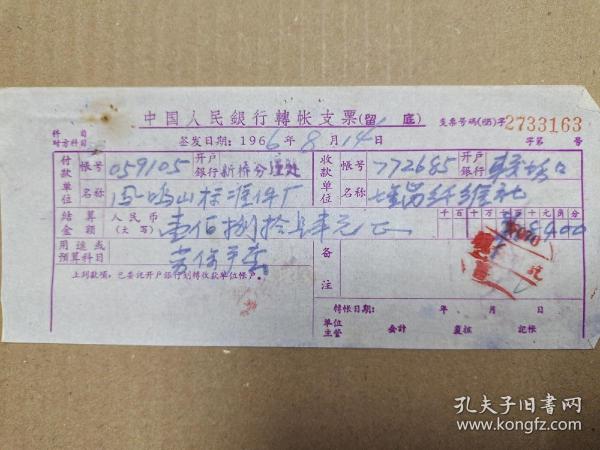 中国人民銀行轉帐支票(留 底)
支票号碼(65)字2733163
科 目
对方科目
签发日期: 1966年8月14日
字第 号
付款单位
帳号 059105
开戶銀行 新桥分理处
名称
标准件厂
收款单位
帳号 772685
开戶銀行
名称
纤维社
結算金额
人民币(大写) 壹佰捌拾 元正
千百十万千百十元角分
用途或預算科目
劳保手套
备注
上列款項,已委託开戶銀行划轉收款单位帳戶。
轉帐日期: 年 月 日
单位主管 会計 复核 記帐
孔夫子旧书网
www.kongfz.com